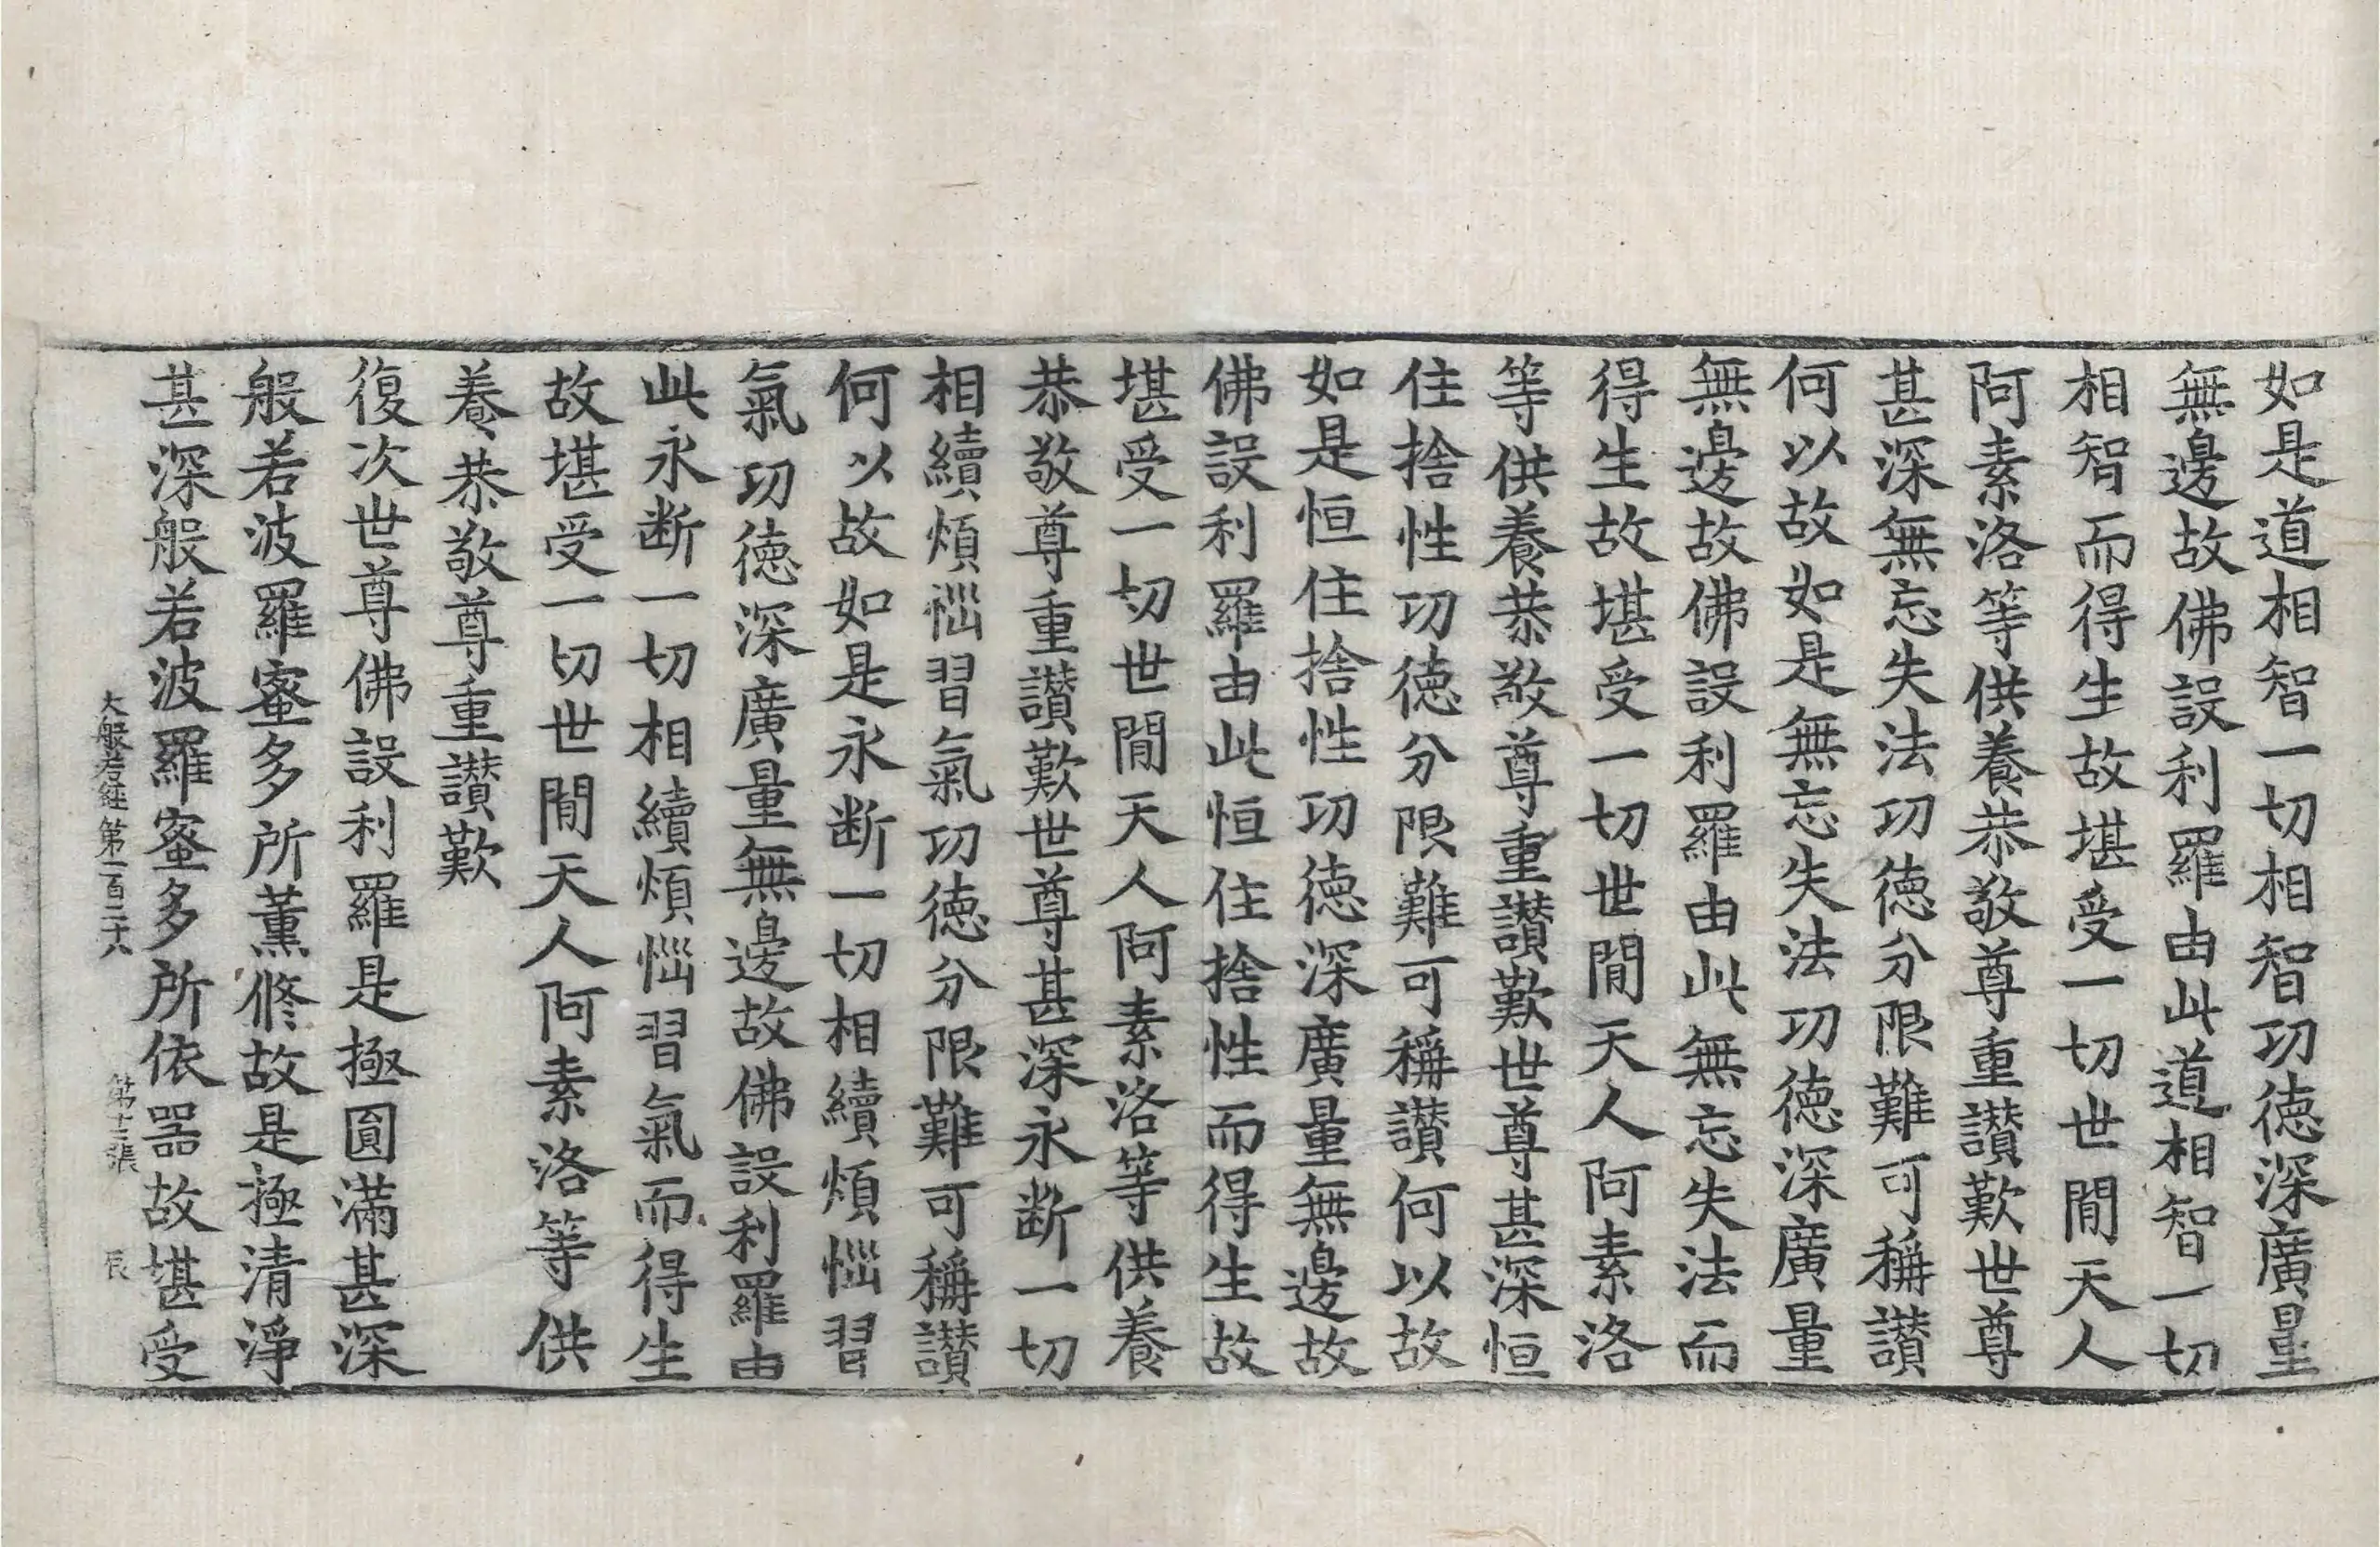 如是道相智一切相智功德深廣量
無邊故佛設利羅由此道相智一切
相智而得生故堪受一切世閒天人
阿素洛等供養恭敬尊重讃歎世尊
甚深無忘失法功德分限難可稱讃
何以故如是無忘失法功德深廣量
無邊故佛設利羅由此無忘失法而
得生故堪受一切世閒天人阿素洛
等供養恭敬尊重讃歎世尊甚深恒
住捨性功德分限難可稱讃何以故
如是恒住捨性功德深廣量無邊故
佛設利羅由此恒住捨性而得生故
堪受一切世閒天人阿素洛等供養
恭敬尊重讃歎世尊甚深永断一切
相續煩惱習氣功德分限難可稱讃
何以故如是永断一切相續煩惱習
氣功德深廣量無邊故佛設利羅由
此永断一切相續煩惱習氣而得生
故堪受一切世閒天人阿素洛等供
養恭敬尊重讃歎
復次世尊佛設利羅是極圓滿甚深
般若波羅蜜多所薫修故是極清淨
甚深般若波羅蜜多所依器故堪受
大般若經第一百二十八 第十二張 辰